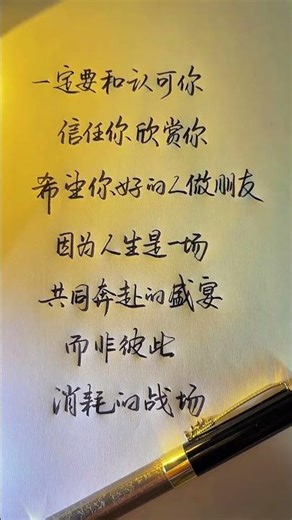 一定要和认可你
信任你欣赏你
希望你好的人做朋友
因为人生是一场
共同奔赴的盛宴
而非彼此
消耗的战场